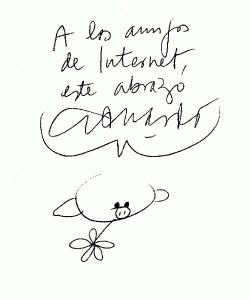 A los amigos
de Internet,
este abrazo